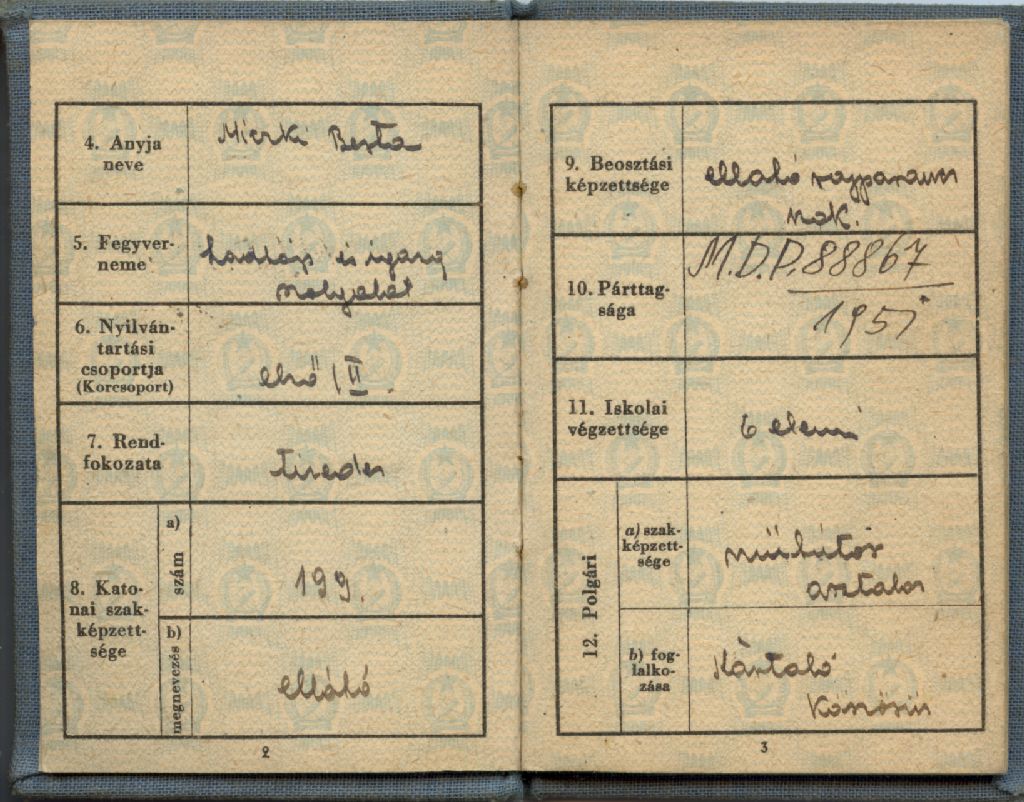 4. Anyja
neve
Berta
5. Fegyver-
neme
hadtáp és igazg
szolgálat
6. Nyilván-
tartási
csoportja
(Korcsoport)
első / II.
7. Rend-
fokozata
tizedes
8. Kato-
nai szak-
képzett-
sége
a)
szám
199.
b)
megnevezés
ellátó
2
9. Beosztási
képzettsége
ellátó rajparancs
nok.
10. Párttag-
sága
M.D.P. 88867
1951
11. Iskolai
végzettsége
6 elemi
12. Polgári
a) szak-
képzett-
sége
műbútor
asztalos
b) fog-
lalko-
zása
3